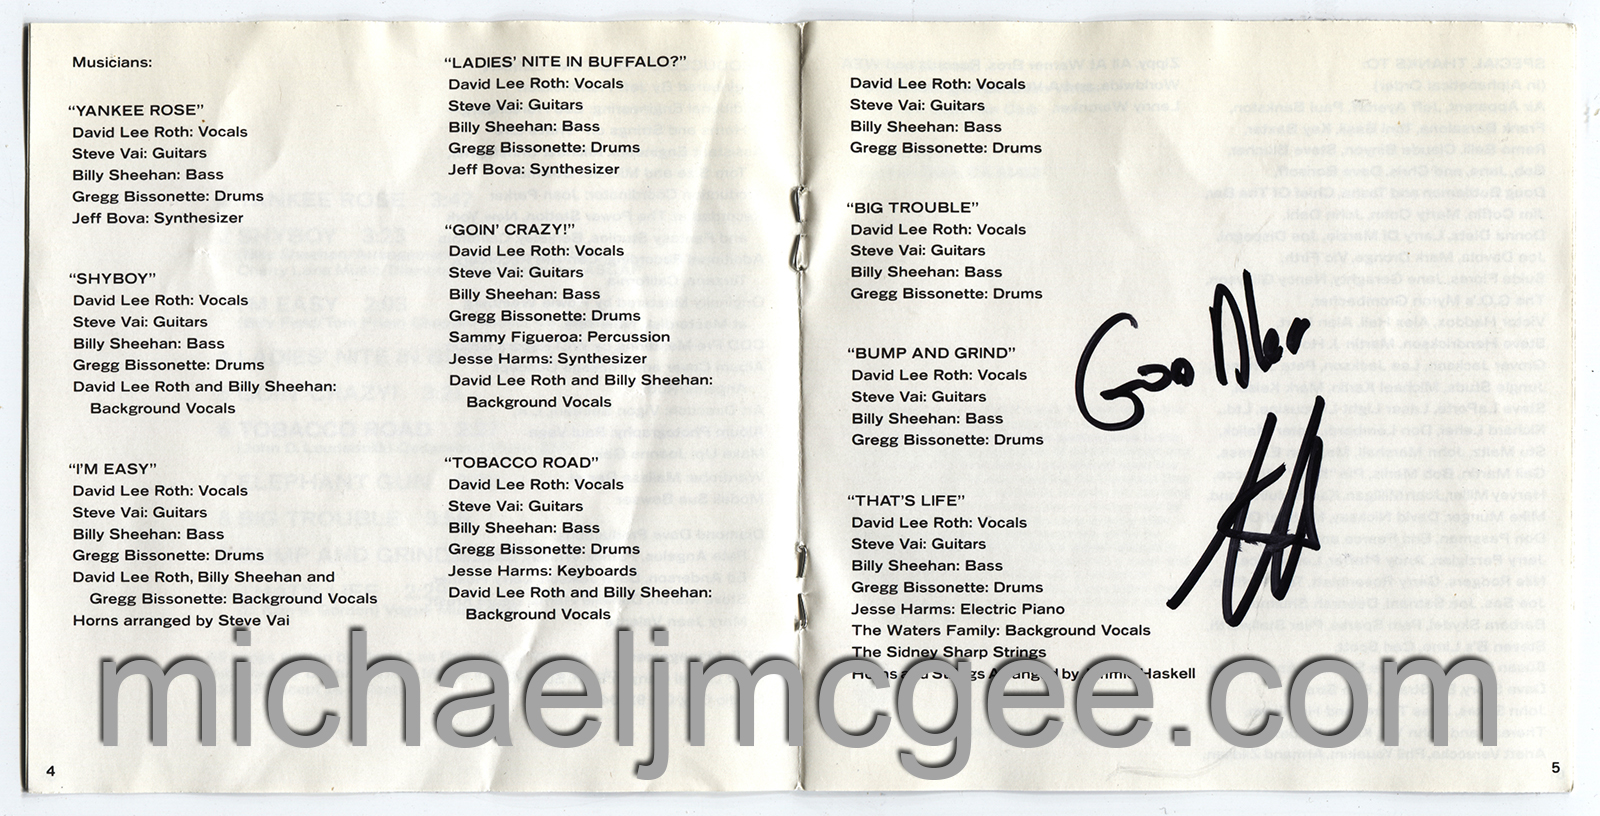 Musicians:
“YANKEE ROSE”
David Lee Roth: Vocals
Steve Vai: Guitars
Billy Sheehan: Bass
Gregg Bissonette: Drums
Jeff Bova: Synthesizer
“SHYBOY”
David Lee Roth: Vocals
Steve Vai: Guitars
Billy Sheehan: Bass
Gregg Bissonette: Drums
David Lee Roth and Billy Sheehan:
Background Vocals
“I’M EASY”
David Lee Roth: Vocals
Steve Vai: Guitars
Billy Sheehan: Bass
Gregg Bissonette: Drums
David Lee Roth, Billy Sheehan and
Gregg Bissonette: Background Vocals
Horns arranged by Steve Vai
4
“LADIES’ NITE IN BUFFALO?”
David Lee Roth: Vocals
Steve Vai: Guitars
Billy Sheehan: Bass
Gregg Bissonette: Drums
Jeff Bova: Synthesizer
“GOIN’ CRAZY!”
David Lee Roth: Vocals
Steve Vai: Guitars
Billy Sheehan: Bass
Gregg Bissonette: Drums
Sammy Figueroa: Percussion
Jesse Harms: Synthesizer
David Lee Roth and Billy Sheehan:
Background Vocals
“TOBACCO ROAD”
David Lee Roth: Vocals
Steve Vai: Guitars
Billy Sheehan: Bass
Gregg Bissonette: Drums
Jesse Harms: Keyboards
David Lee Roth and Billy Sheehan:
Background Vocals
David Lee Roth: Vocals
Steve Vai: Guitars
Billy Sheehan: Bass
Gregg Bissonette: Drums
“BIG TROUBLE”
David Lee Roth: Vocals
Steve Vai: Guitars
Billy Sheehan: Bass
Gregg Bissonette: Drums
“BUMP AND GRIND”
David Lee Roth: Vocals
Steve Vai: Guitars
Billy Sheehan: Bass
Gregg Bissonette: Drums
“THAT’S LIFE”
David Lee Roth: Vocals
Steve Vai: Guitars
Billy Sheehan: Bass
Gregg Bissonette: Drums
Jesse Harms: Electric Piano
The Waters Family: Background Vocals
The Sidney Sharp Strings
Horns and Strings Arranged by Jimmie Haskell
5
michaeljmcgee.com